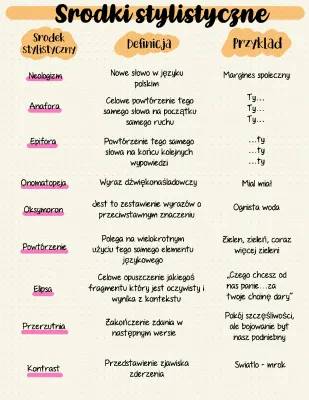 Środki stylistyczne
Środek
stylistyczny
Definicja
Przykład
Neologizm
Nowe słowo w języku
polskim
Margines społeczny
Anafora
Celowe powtórzenie tego
samego słowa na początku
samego ruchu
Ty...
Ty...
Ty...
Epifora
Powtórzenie tego samego
słowa na końcu kolejnych
wypowiedzi
...ty
...ty
...ty
Onomatopeja
Wyraz dźwiękonaśladowczy
Miał miał
Oksymoron
Jest to zestawienie wyrazów o
przeciwstawnym znaczeniu
Ognista woda
Powtórzenie
Polega na wielokrotnym
użyciu tego samego elementu
językowego
Zieleń, zieleń, coraz
więcej zieleni
Elipsa
Celowe opuszczenie jakiegoś
fragmentu który jest oczywisty i
wynika z kontekstu
„Czego chcesz od
nas panie...za
twoje hojne dary"
Przerzutnia
Zakończenie zdania w
następnym wersie
Pokój szczęśliwości,
ale bojowanie byt
nasz podniebny
Kontrast
Przedstawienie zjawiska
zderzenia
Światło - mrok